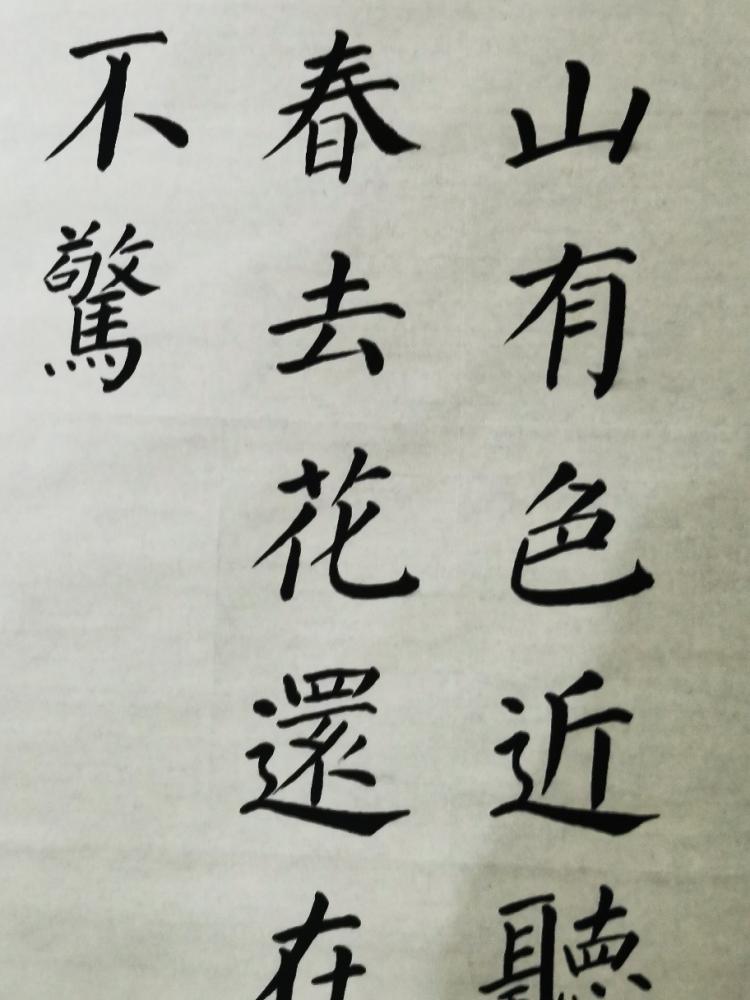 山有色近聽
春去花還在
不驚